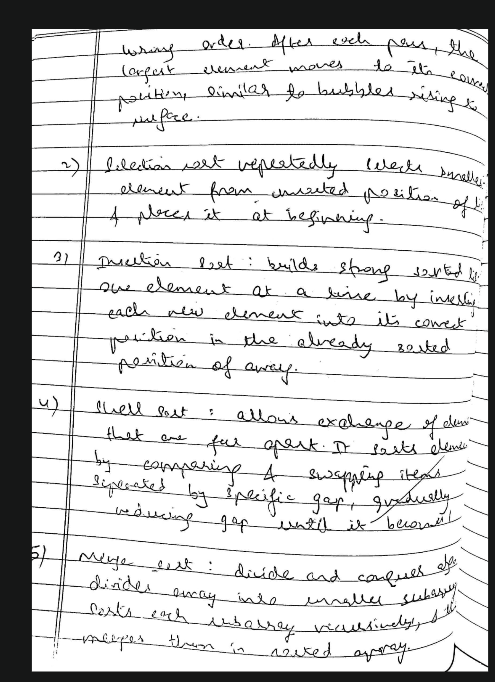 wrong order. After each pass, the
largest element moves to its correc
position, similar to bubbles rising to
surface.
2) Selection sort repeatedly selects smalles
element from unsorted position of li
& places it at beginning.
3) Insertion sort : builds strong sorted li
one element at a time by inserting
each new element into its correct
position in the already sorted
position of array.
4) Shell sort : allows exchange of elem
that are far apart. It sorts eleme
by comparing & swapping items
seperated by specific gap, gradually
reducing gap until it becomes 1
5) Merge sort : divide and conquer
divides array into smaller subarray
sorts each subarray recursively, &
merges them in sorted array.